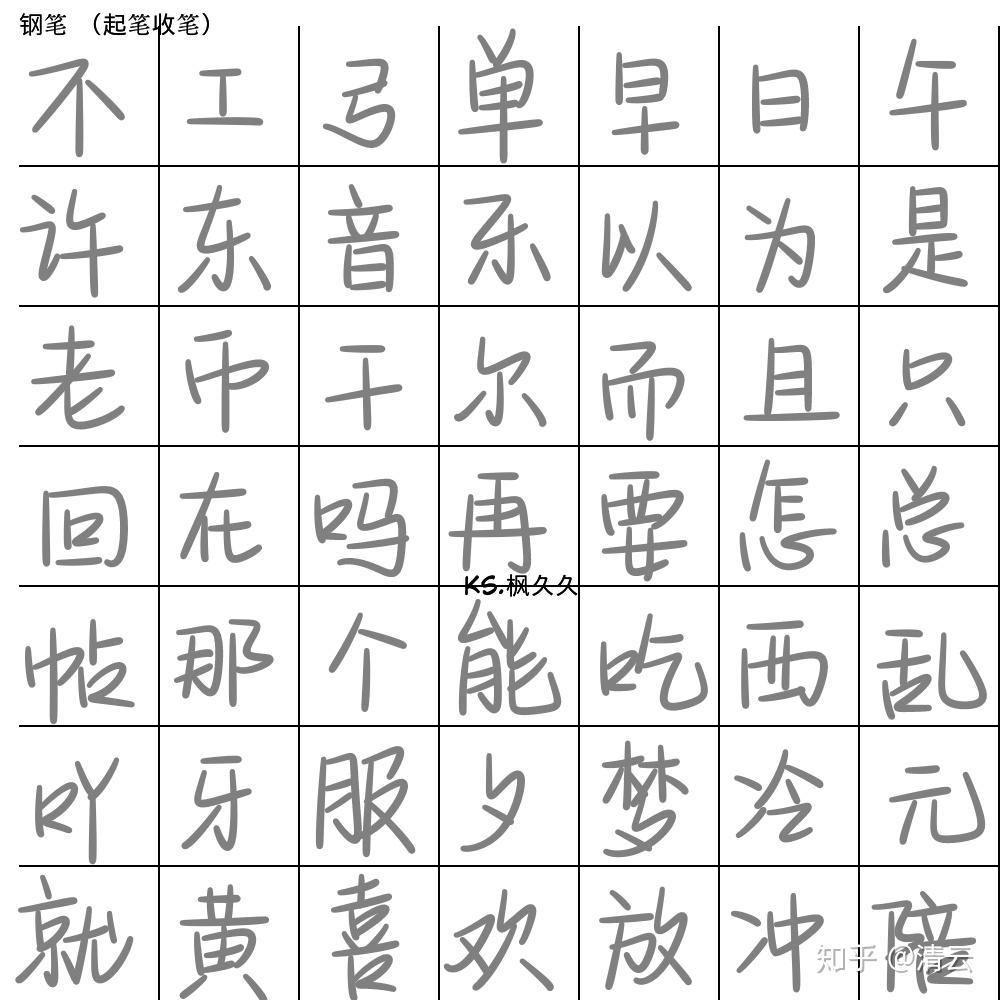 钢笔 （起笔收笔）
不 工 弓 单 早 日 午
许 东 音 乐 以 为 是
老 币 干 尔 而 且 只
回 在 吗 再 要 怎 总
KS.枫久久
帖 那 个 能 吃 西 乱
吖 牙 服 夕 梦 冷 元
就 黄 喜 欢 放 冲 陪
知乎 @清云